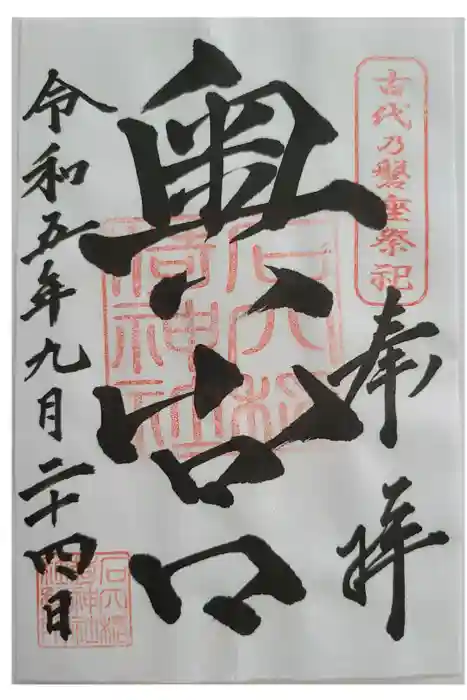 古代乃磐座祭祀
奉拝
奥宮
石穴稲
荷神社
令和五年九月二十四日